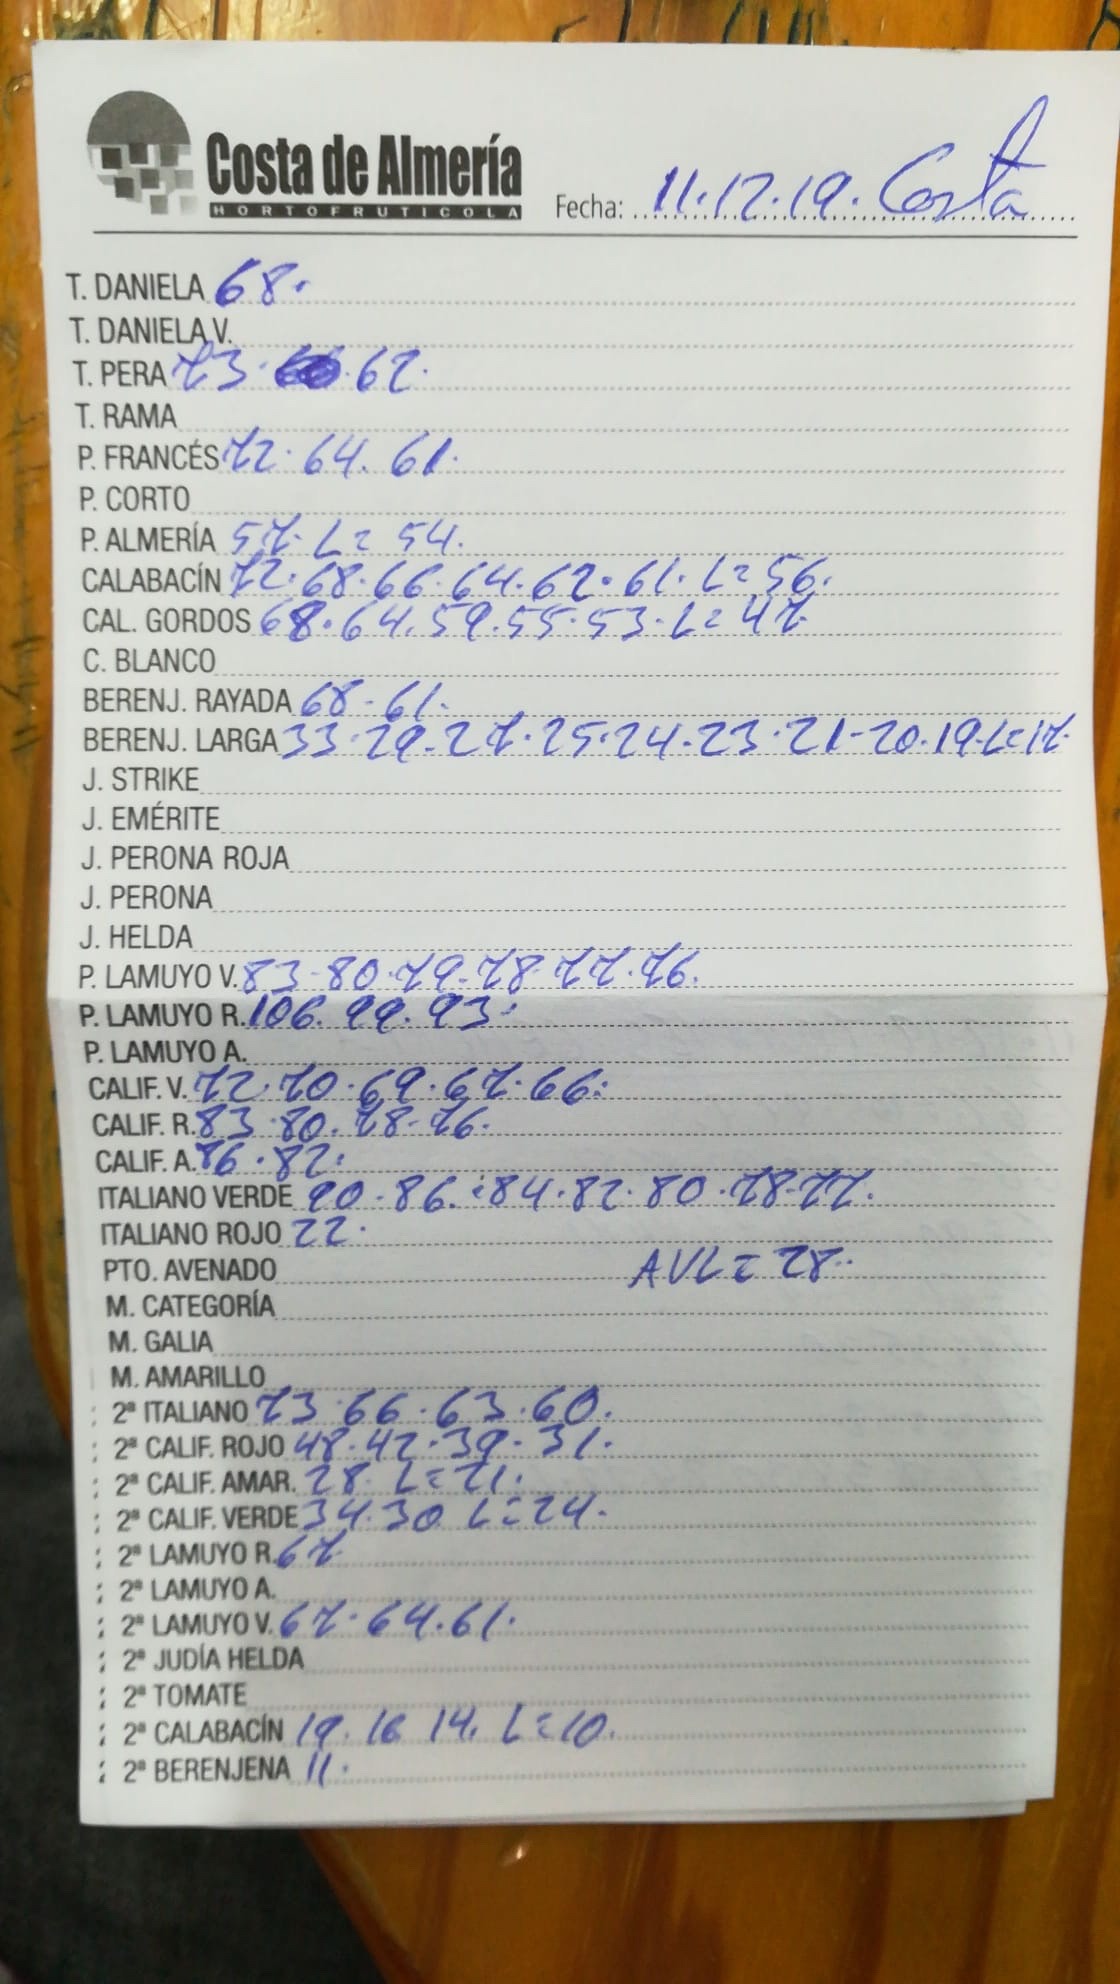 Costa de Almería
HORTOFRUTICOLA
Fecha: 11.12.19. Costa
T. DANIELA 68.
T. DANIELA V.
T. PERA 73. 62.
T. RAMA
P. FRANCÉS 72. 64. 61.
P. CORTO
P. ALMERÍA 57. L= 54.
CALABACÍN 72.68.66.64.62.61.L=56.
CAL. GORDOS 68.64.59.55.53.L=47.
C. BLANCO
BERENJ. RAYADA 68-61.
BERENJ. LARGA 33.29-27.25.24.23.21-20.19.L=17.
J. STRIKE
J. EMÉRITE
J. PERONA ROJA
J. PERONA
J. HELDA
P. LAMUYO V. 83-80.79-78-77.76.
P. LAMUYO R. 106.99.93.
P. LAMUYO A.
CALIF. V. 72.70.69.67.66.
CALIF. R. 83.80.78-76.
CALIF. A. 86.82.
ITALIANO VERDE 90-86.84.82.80.78-77.
ITALIANO ROJO 22.
PTO. AVENADO AVL=28.
M. CATEGORÍA
M. GALIA
M. AMARILLO
2ª ITALIANO 73.66.63.60.
2ª CALIF. ROJO 48.42.39-31.
2ª CALIF. AMAR. 28. L=21.
2ª CALIF. VERDE 34.30. L=24.
2ª LAMUYO R. 67
2ª LAMUYO A.
2ª LAMUYO V. 67.64.61.
2ª JUDÍA HELDA
2ª TOMATE
2ª CALABACÍN 19. 16 14. L=10.
2ª BERENJENA 11.